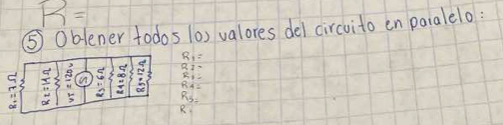 R=
⑤ Obtener todos los valores del circuito en paralelo:
R₁=7Ω
R₂=11Ω
VT=120V
R₃=6Ω
R₄=8Ω
R₅=12Ω
R₁=
R₂=
R₃=
R₄=
R₅=
R.